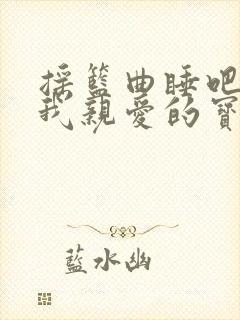 搖籃曲睡吧
我親愛的寶
藍水幽